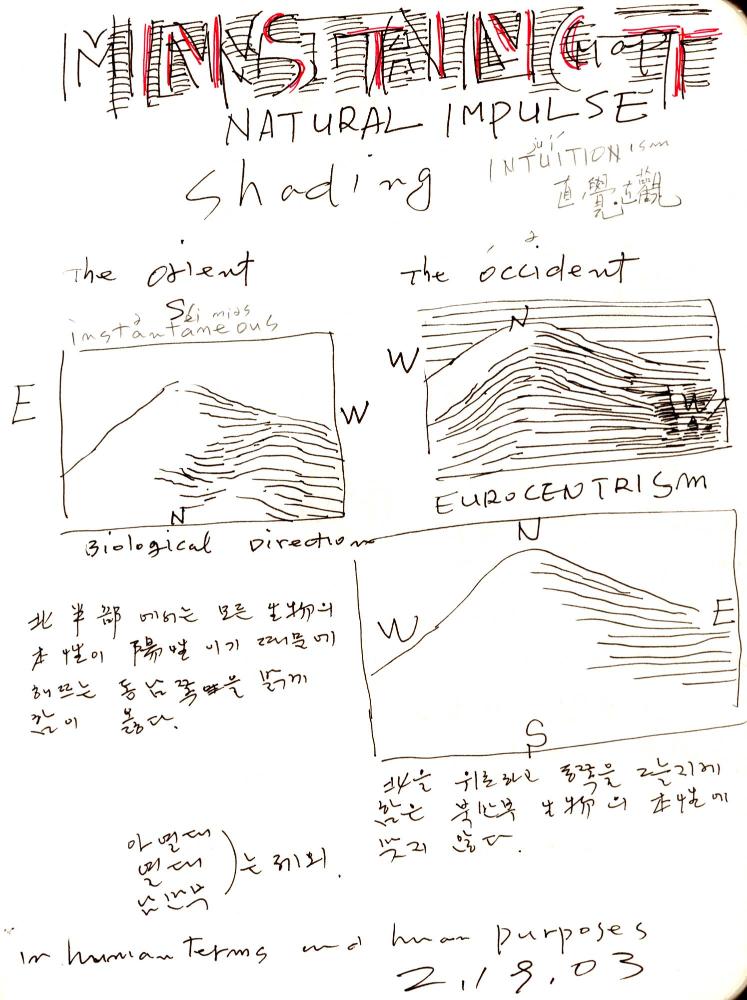 NATURAL IMPULSE
INTUITIONism
shading
直覺.直觀
The Orient
S
instantaneous
E
W
N
Biological Direction
The óccident
N
W
EUROCENTRISM
N
W
E
S
北半部 에서는 모든 生物의
本性이 陽性 이기 때문에
해뜨는 동남쪽을 밝게
함이 옳다.
北을 위로하고 동쪽을 그늘지게
함은 북반부 生物의 本性에
맞지 않다.
아열대
열대
남반부
) 는 예외.
in human terms and human purposes
2.19.03